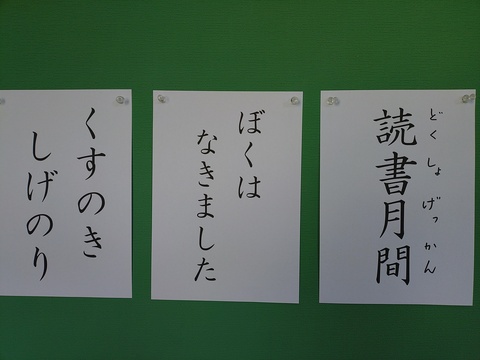 読書月間
どくしょげっかん
ぼくは
なきました
くすのき
しげのり